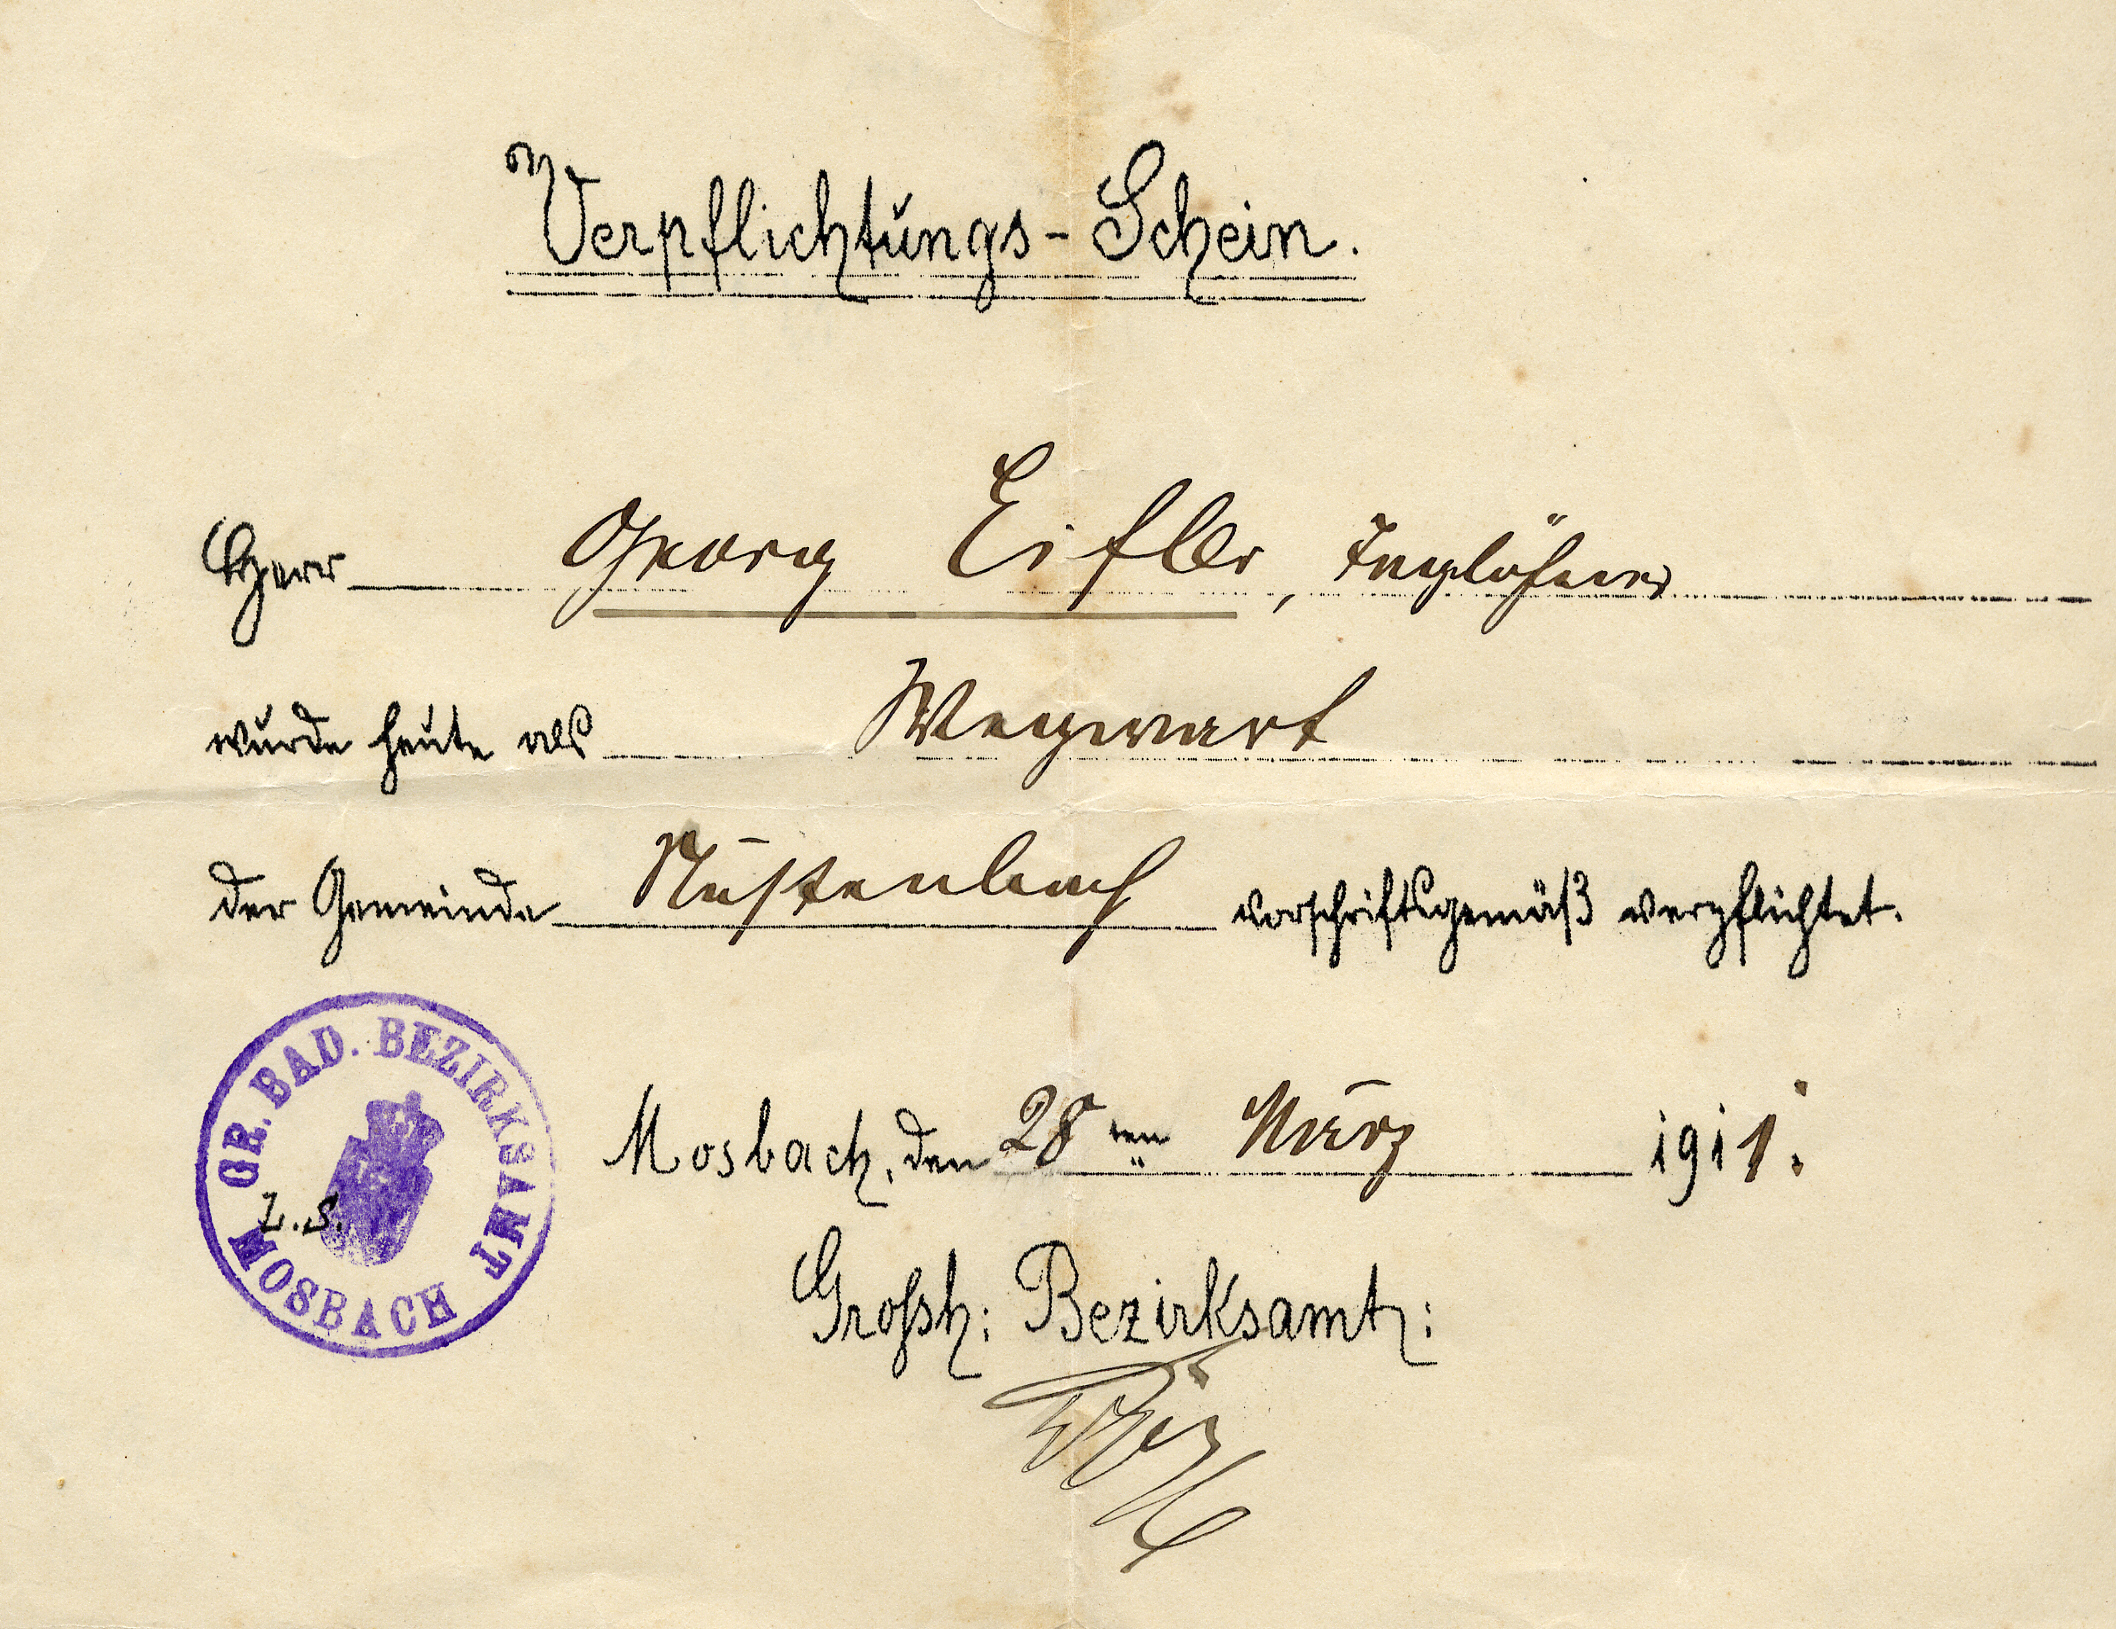 Verpflichtungs-Schein.
Herr Georg Eifler, Taglöhner
wurde heute als Wegwart
der Gemeinde Nüstenbach vorschriftsgemäß verpflichtet.
GR. BAD. BEZIRKSAMT MOSBACH
L.S.
Mosbach, den 28ten März 1911.
Grossh: Bezirksamt: